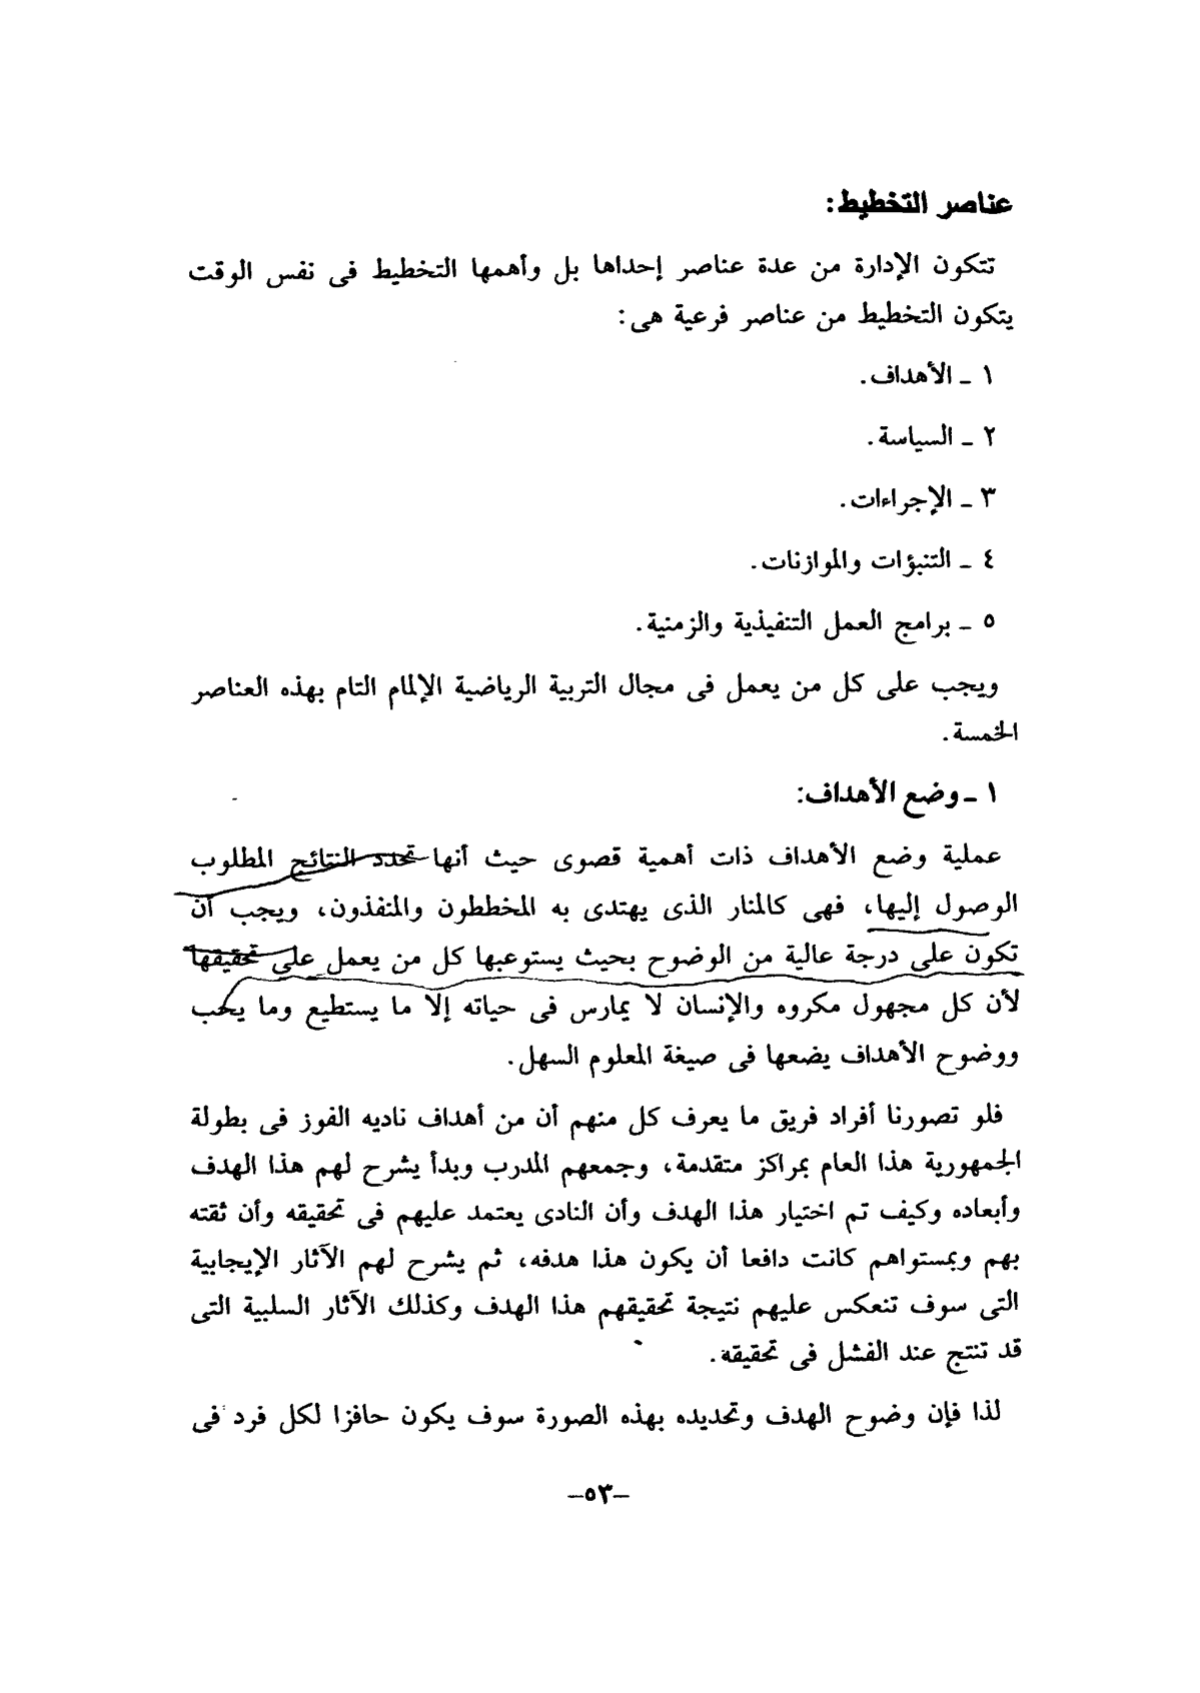 عناصر التخطيط:
تتكون الإدارة من عدة عناصر إحداها بل وأهمها التخطيط فى نفس الوقت
يتكون التخطيط من عناصر فرعية هى:
١ ـ الأهداف.
٢ ـ السياسة.
٣ ـ الإجراءات.
٤ ـ التنبؤات والموازنات.
٥ ـ برامج العمل التنفيذية والزمنية.
ويجب على كل من يعمل فى مجال التربية الرياضية الإلمام التام بهذه العناصر
الخمسة.
١ ـ وضع الأهداف:
عملية وضع الأهداف ذات أهمية قصوى حيث أنها تحدد النتائج المطلوب
الوصول إليها، فهى كالمنار الذى يهتدى به المخططون والمنفذون، ويجب أن
تكون على درجة عالية من الوضوح بحيث يستوعبها كل من يعمل على تحقيقها
لأن كل مجهول مكروه والإنسان لا يمارس فى حياته إلا ما يستطيع وما يحب
ووضوح الأهداف يضعها فى صيغة المعلوم السهل.
فلو تصورنا أفراد فريق ما يعرف كل منهم أن من أهداف ناديه الفوز فى بطولة
الجمهورية هذا العام بمراكز متقدمة، وجمعهم المدرب وبدأ يشرح لهم هذا الهدف
وأبعاده وكيف تم اختيار هذا الهدف وأن النادى يعتمد عليهم فى تحقيقه وأن ثقته
بهم وبمستواهم كانت دافعا أن يكون هذا هدفه، ثم يشرح لهم الآثار الإيجابية
التى سوف تنعكس عليهم نتيجة تحقيقهم هذا الهدف وكذلك الآثار السلبية التى
قد تنتج عند الفشل فى تحقيقه.
لذا فإن وضوح الهدف وتحديده بهذه الصورة سوف يكون حافزا لكل فرد فى
–٥٣–